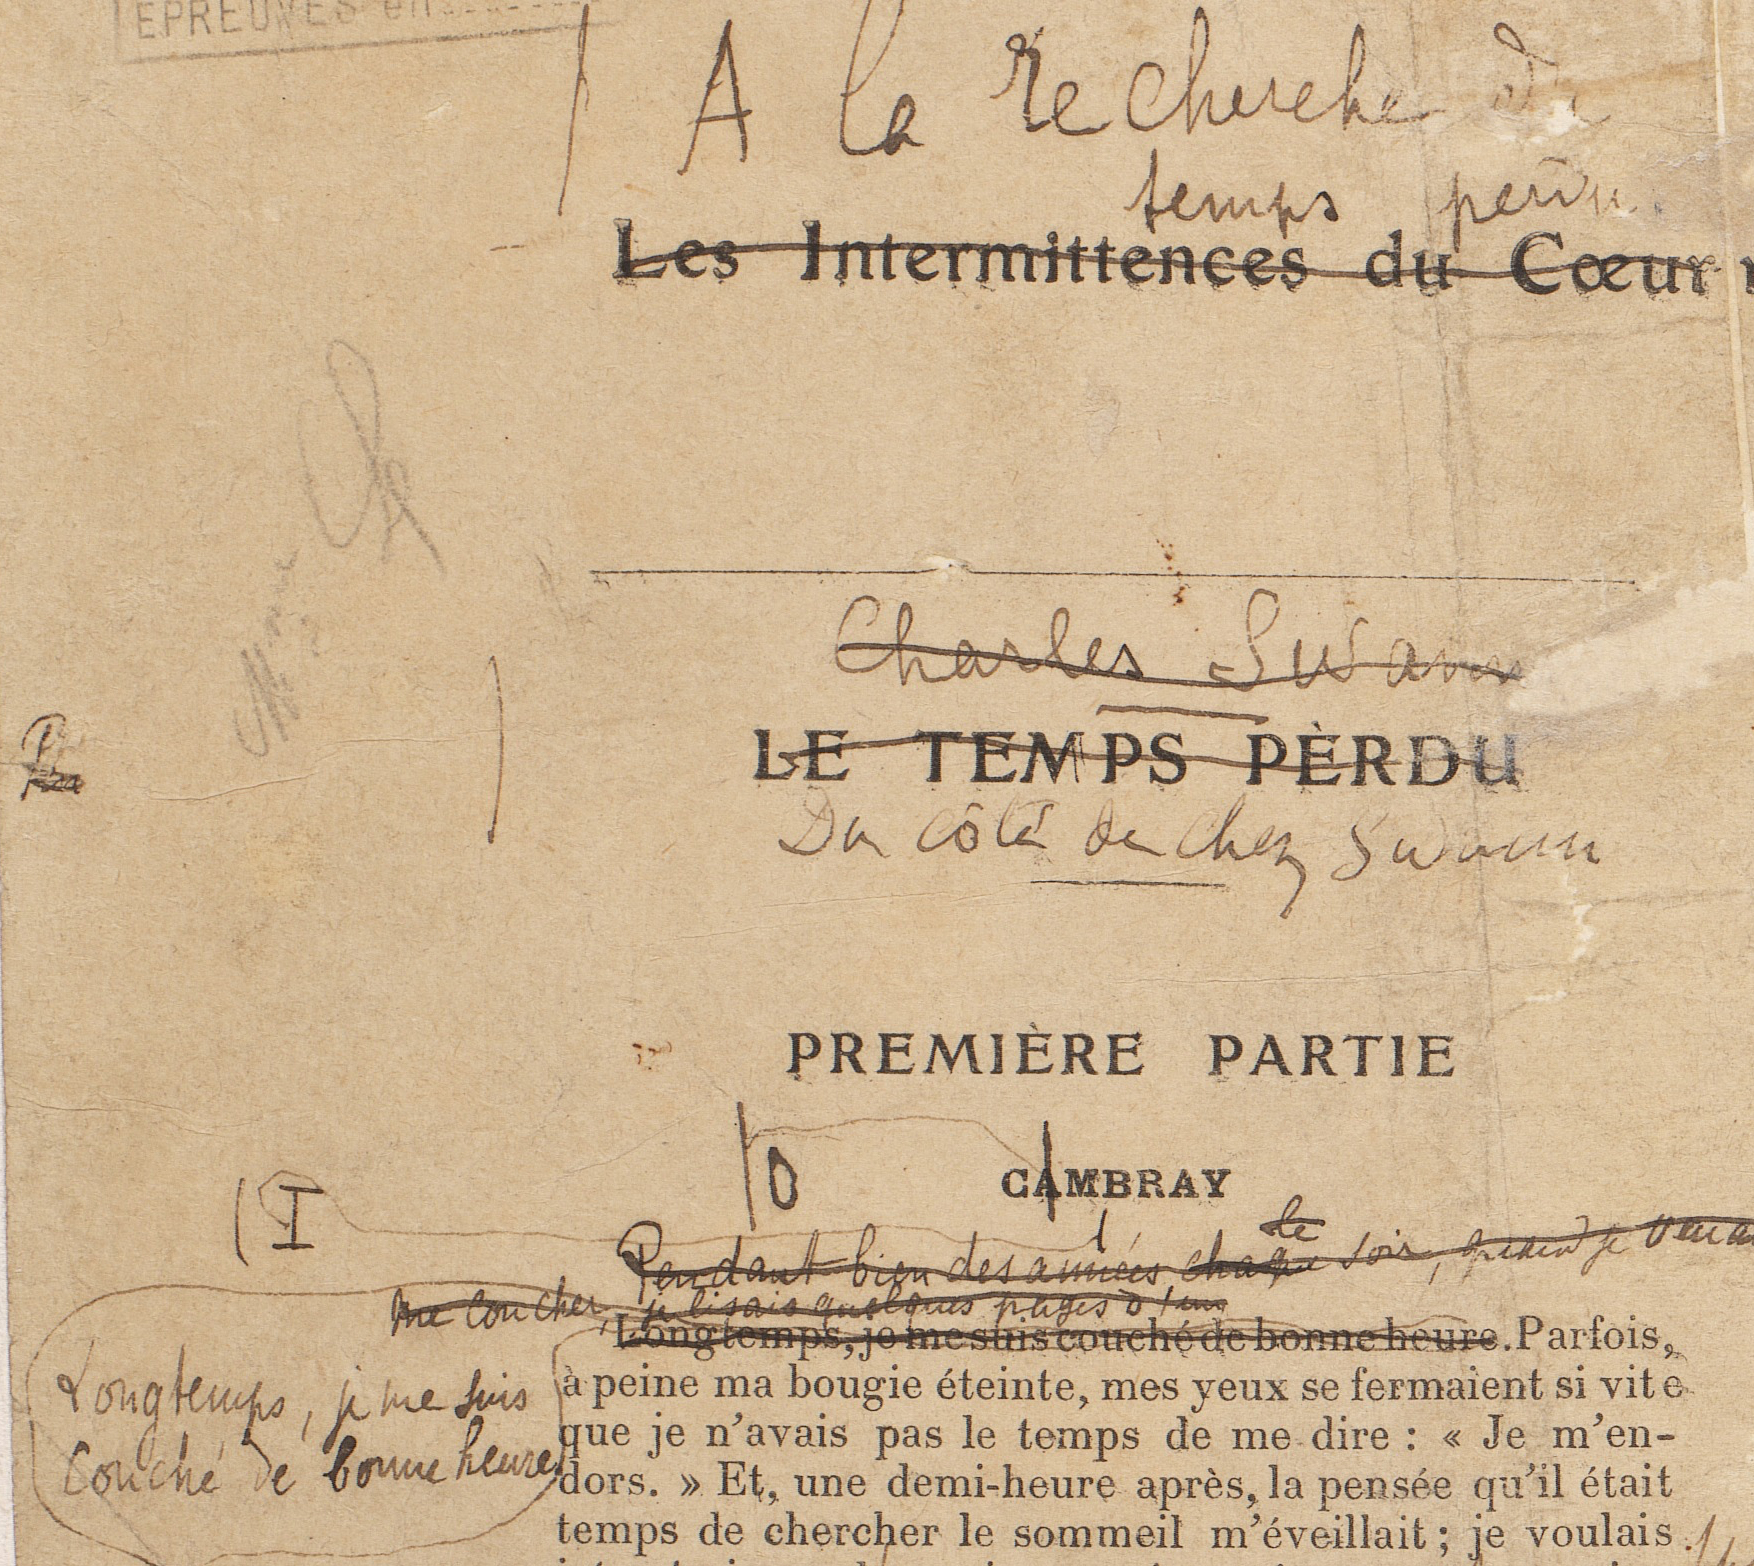 EPREUVES en
A la recherche du
temps perdu
Les Intermittences du Cœur
Charles Swann
LE TEMPS PERDU
Du côté de chez Swann
PREMIÈRE PARTIE
I O CAMBRAY
le
Pendant bien des années, chaque soir, quand je venais
me coucher, je lisais quelques pages d'un
Longtemps, je me suis couché de bonne heure. Parfois,
Longtemps, je me suis
couché de bonne heure.
à peine ma bougie éteinte, mes yeux se fermaient si vite
que je n'avais pas le temps de me dire : « Je m'en-
dors. » Et, une demi-heure après, la pensée qu'il était
temps de chercher le sommeil m'éveillait ; je voulais